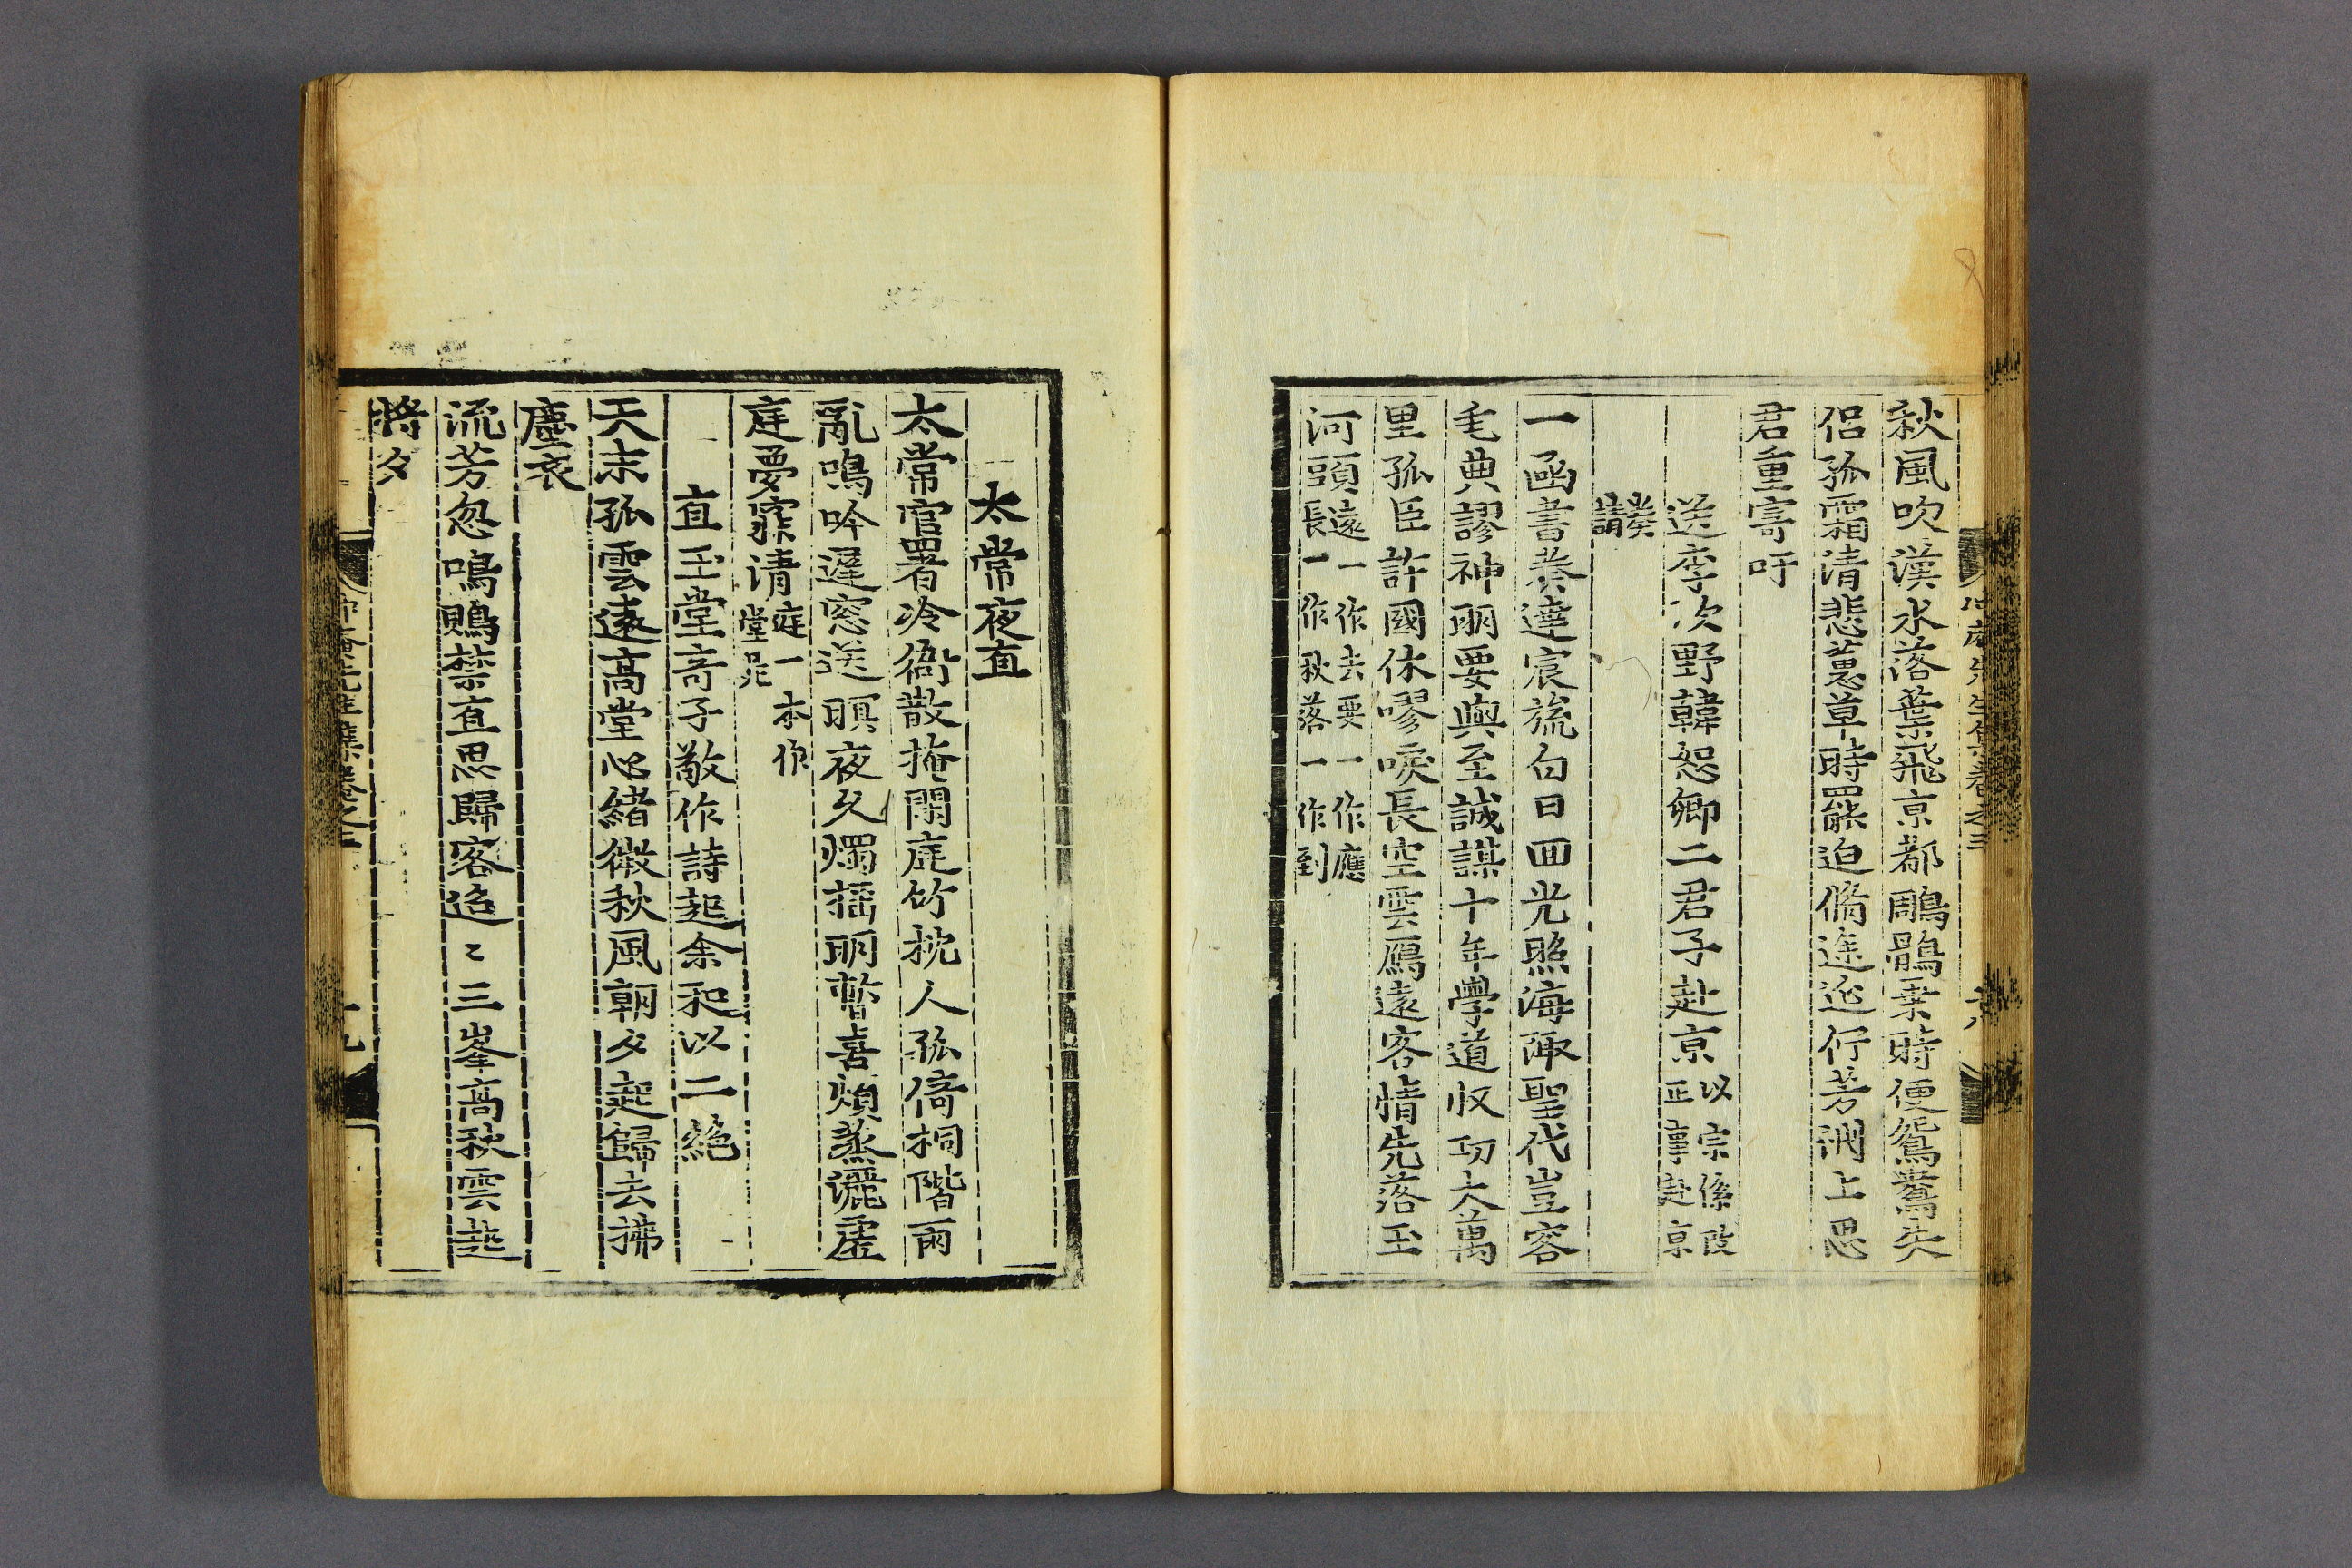 秋風吹漢水落葉飛京都鵰鶻乗時便鴛鴦失
侣孤霜清悲蕙草時罷迫脩途迩行芳洲上思
君重寄吁
送李次野韓恕卿二君子赴京以宗係改
正事赴京
奏請
一函書奏達宸旒白日回光照海陬聖代豈容
毛典謬神明要與至誠謀十年學道収功大萬
里孤臣許國休嘐唳長空雲鴈遠客情先落玉
河頭遠一作去要一作應
長一作秋落一作到
太常夜直
太常官署冷衙散掩閑庭竹枕人孤倚桐階雨
亂鳴吟遲窓送暝夜久燭揺明暫喜煩蒸灑虛
庭夢寐清庭一本作
堂是
直玉堂竒子敬作詩起余和以二絶
天末孤雲遠高堂心緒微秋風朝夕起歸去拂
塵衣
流芳忽鳴鵙禁直思歸客迢〻三峯高秋雲起
將夕